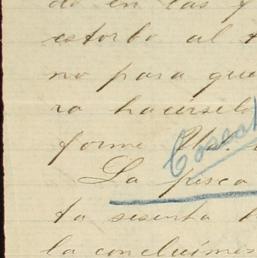 do en las f
estorbo al t
no para que
ra hacérselo
forme Us.
La pesca
ta sesenta
la concluimes